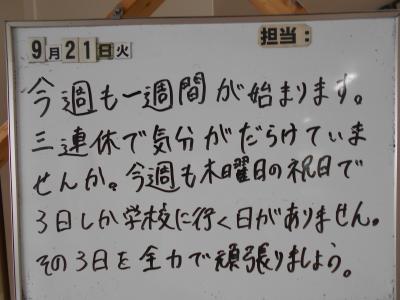 9月21日火 担当：
今週も一週間が始まります。
三連休で気分がだらけていま
せんか。今週も木曜日の祝日で
3日しか学校に行く日がありません。
その3日を全力で頑張りましょう。